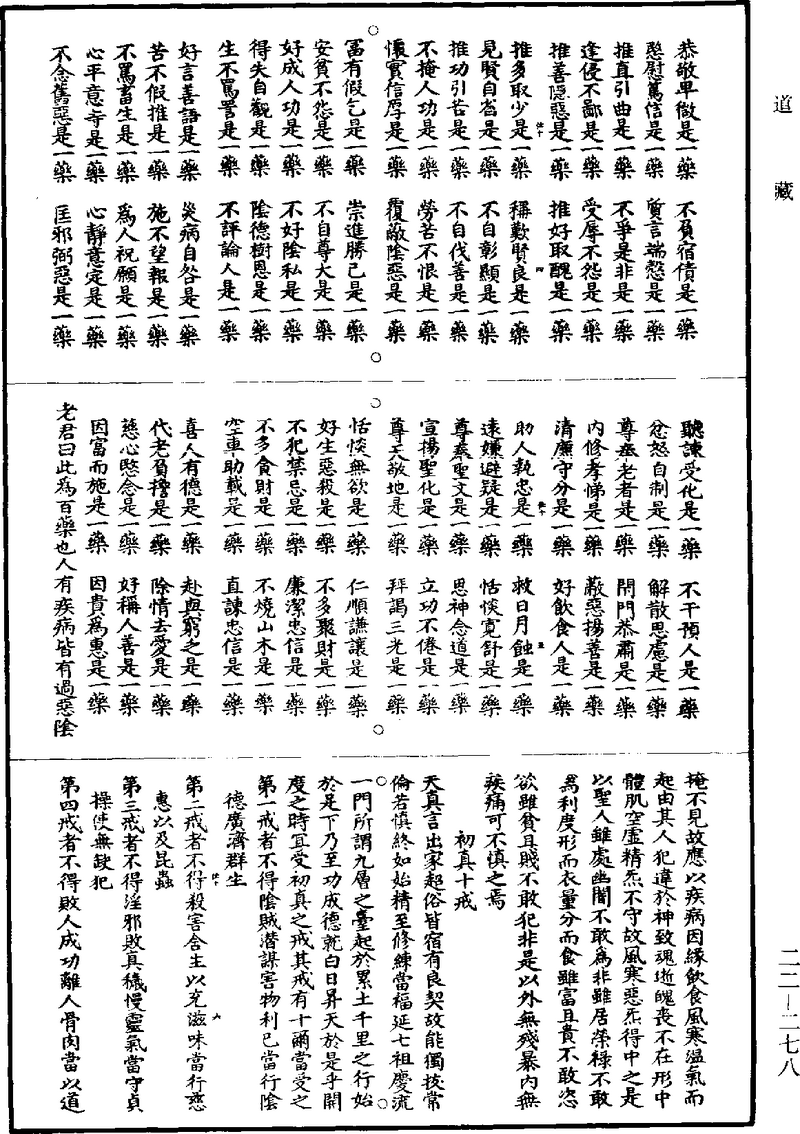 道藏
恭敬卑微是一藥　不負宿債是一藥
愍慰篤信是一藥　質言端慤是一藥
推直引曲是一藥　不爭是非是一藥
逢侵不鄙是一藥　受辱不怨是一藥
推善隱惡是一藥　推好取醜是一藥
推多取少是一藥　稱歎賢良是一藥
見賢自省是一藥　不自彰顯是一藥
推功引苦是一藥　不自伐善是一藥
不掩人功是一藥　勞苦不恨是一藥
懷實信厚是一藥　覆蔽陰惡是一藥
富有假乞是一藥　崇進勝己是一藥
安貧不怨是一藥　不自尊大是一藥
好成人功是一藥　不好陰私是一藥
得失自觀是一藥　陰德樹恩是一藥
生不罵詈是一藥　不評論人是一藥
好言善語是一藥　災病自咎是一藥
苦不假推是一藥　施不望報是一藥
不罵畜生是一藥　為人祝願是一藥
心平意等是一藥　心靜意定是一藥
不念舊惡是一藥　匡邪弼惡是一藥
聽諫受化是一藥　不干預人是一藥
忿怒自制是一藥　解散思慮是一藥
尊奉老者是一藥　閉門恭肅是一藥
內修孝悌是一藥　蔽惡揚善是一藥
清廉守分是一藥　好飲食人是一藥
助人執忠是一藥　救日月蝕是一藥
遠嫌避疑是一藥　恬惔寬舒是一藥
尊奉聖文是一藥　思神念道是一藥
宣揚聖化是一藥　立功不倦是一藥
尊天敬地是一藥　拜謁三光是一藥
恬惔無欲是一藥　仁順謙讓是一藥
好生惡殺是一藥　不多聚財是一藥
不犯禁忌是一藥　廉潔忠信是一藥
不多貪財是一藥　不燒山木是一藥
空車助載是一藥　直諫忠信是一藥
喜人有德是一藥　赴與窮乏是一藥
代老負擔是一藥　除情去愛是一藥
慈心愍念是一藥　好稱人善是一藥
因富而施是一藥　因貴為惠是一藥
老君曰此為百藥也人有疾病皆有過惡陰
掩不見故應以疾病因緣飲食風寒溫氣而
起由其人犯違於神致魂逝魄喪不在形中
體肌空虛精炁不守故風寒惡炁得中之是
以聖人雖處幽闇不敢為非雖居榮祿不敢
為利度形而衣量分而食雖富且貴不敢恣
欲雖貧且賤不敢犯非是以外無殘暴內無
疾痛可不慎之焉
初真十戒
天真言出家超俗皆宿有良契故能獨拔常
倫若慎終如始精至修練當福延七祖慶流
一門所謂九層之臺起於累土千里之行始
於是下乃至功成德就白日昇天於是乎開
度之時宜受初真之戒其戒有十爾當受之
第一戒者不得陰賊潛謀害物利己當行陰
德廣濟群生
第二戒者不得殺害含生以充滋味當行慈
惠以及昆蟲
第三戒者不得淫邪敗真穢慢靈氣當守貞
操使無缺犯
第四戒者不得敗人成功離人骨肉當以道
二二－二七八